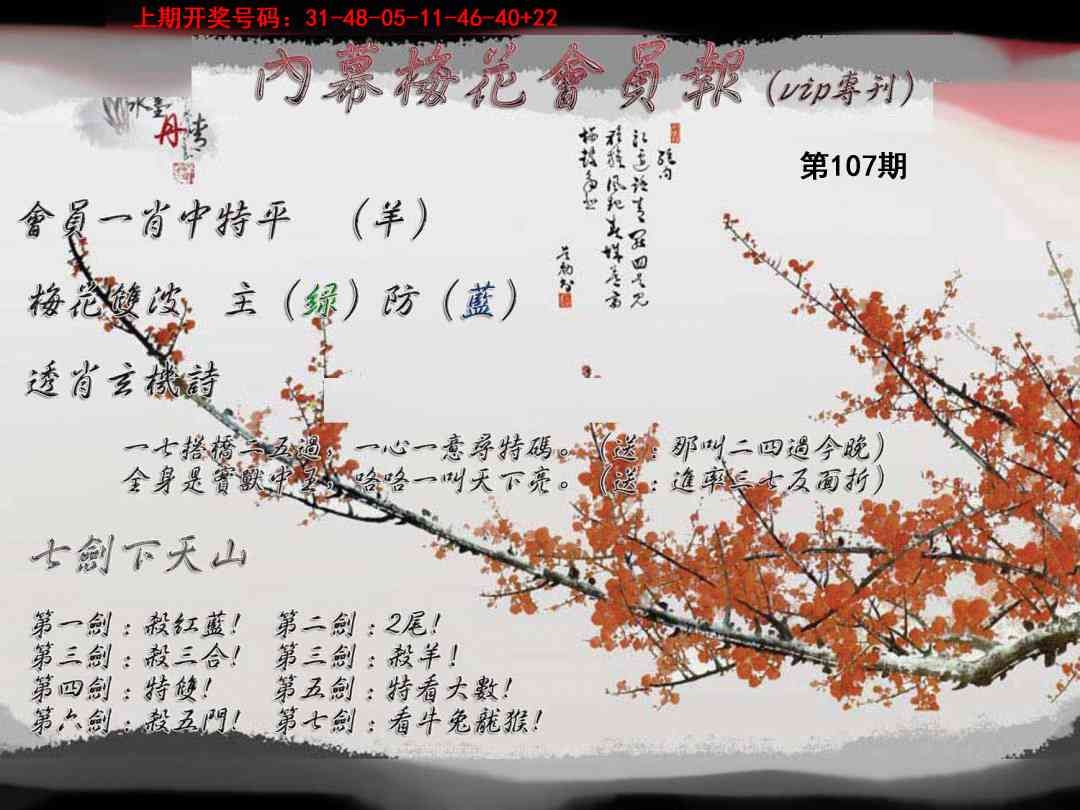 上期开奖号码：31-48-05-11-46-40+22
內幕梅花會員報（vip專刊）
水墨
丹
第107期
會員一肖中特平　（羊）
梅花雙波　主（綠）防（藍）
透肖玄機詩
一七搭橋二五過，一心一意尋特碼。（送：那叫二四過今晚）
全身是寶獸中王，咯咯一叫天下亮。（送：進率三七反面折）
七劍下天山
第一劍：殺紅藍！　第二劍：2尾！
第三劍：殺三合！　第三劍：殺羊！
第四劍：特雙！　第五劍：特看大數！
第六劍：殺五門！　第七劍：看牛兔龍猴！